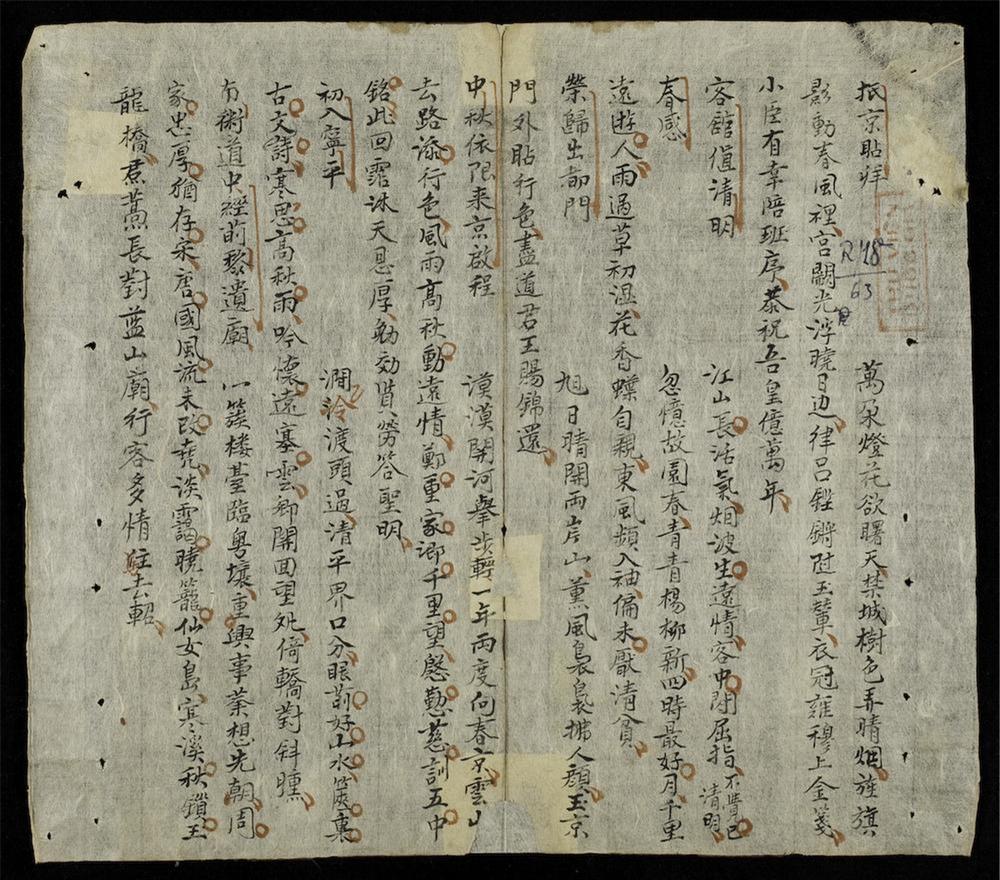 抵京貼拜　萬朶燈花欲曙天禁城樹色弄晴烟旌旗
影動春風裡宮闕光浮曉日边律呂鏗鏘陞玉輦衣冠雍穆上金箋
小臣有幸陪班序恭祝吾皇億萬年
客舘值清明　江山長活氣烟波生遠情客中閒屈指不覺已清明
春感　忽憶故園春青青楊柳新四時最好月千里
遠遊人雨過草初湿花香蝶自親東風頻入袖偏未厭清貧
榮歸出都門　旭日晴開兩岸山薰風裊裊拂人顏玉京
門外貼行色盡道君王賜錦還
中秋依限来京啟程　漠漠關河舉步輕一年兩度向春京雲山
去路添行色風雨高秋動遠情鄭重家鄉千里望慇懃慈訓五中
銘此回霑沐天恩厚勉効賢勞答聖明
初入寧平　澗泠渡頭過清平界口分眼前好山水篋裏
古文詩寒思高秋雨吟懷遠塞雲鄉關回望処倚轎對斜曛
有術道中經前黎遺廟　一簇楼臺臨粤壤重興事業想先朝周
家忠厚猶存宋唐國風流未改堯淡靄曉籠仙女島寒溪秋鎖王
龍橋焄蒿長對蓝山廟行客多情駐去軺
R 48
63